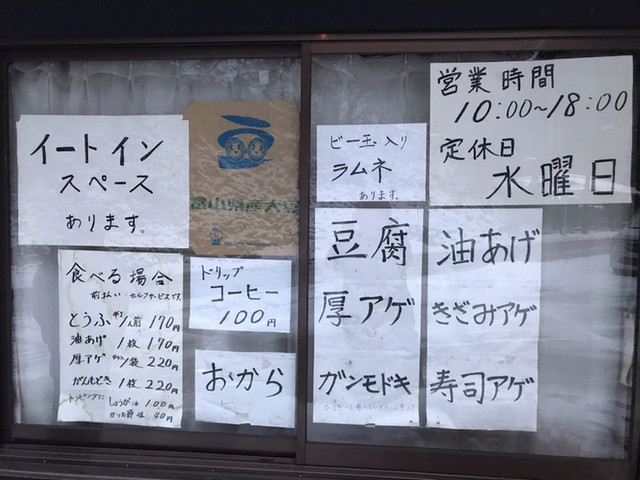 イートイン
スペース
あります。
富山県産大豆
食べる場合
前払い セルフサービスです。
とうふ 1人前 170円
油あげ 1枚 170円
厚アゲ 1袋 220円
がんもどき 1枚 220円
トッピングに しょうが油 100円
かつお節 40円
ドリップ
コーヒー
100円
おから
ビー玉入り
ラムネ
あります。
営業時間
10:00~18:00
定休日
水曜日
豆腐
厚アゲ
ガンモドキ
油あげ
きざみアゲ
寿司アゲ